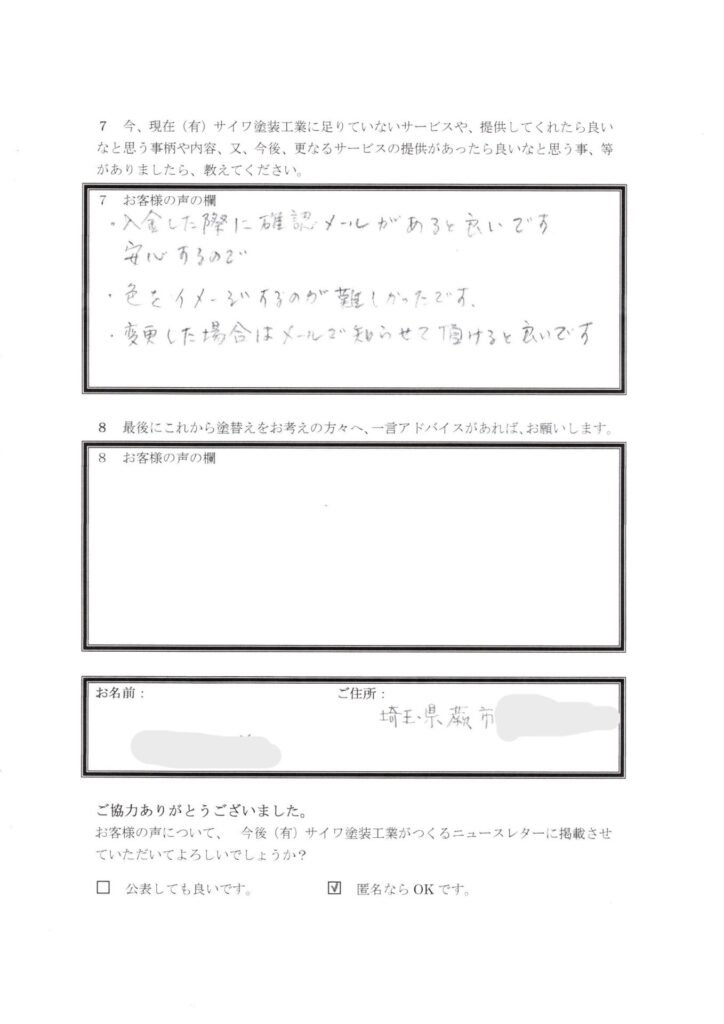 7 今、現在（有）サイワ塗装工業に足りていないサービスや、提供してくれたら良い
なと思う事柄や内容、又、今後、更なるサービスの提供があったら良いなと思う事、等
がありましたら、教えてください。
7 お客様の声の欄
・入金した際に確認メールがあると良いです
安心するので
・色をイメージするのが難しかったです.
・変更した場合はメールで知らせて頂けると良いです
8 最後にこれから塗替えをお考えの方々へ、一言アドバイスがあれば、お願いします。
8 お客様の声の欄
お名前： ご住所：
埼玉県蕨市
ご協力ありがとうございました。
お客様の声について、 今後（有）サイワ塗装工業がつくるニュースレターに掲載させ
ていただいてよろしいでしょうか？
□ 公表しても良いです。 ☑ 匿名なら OK です。